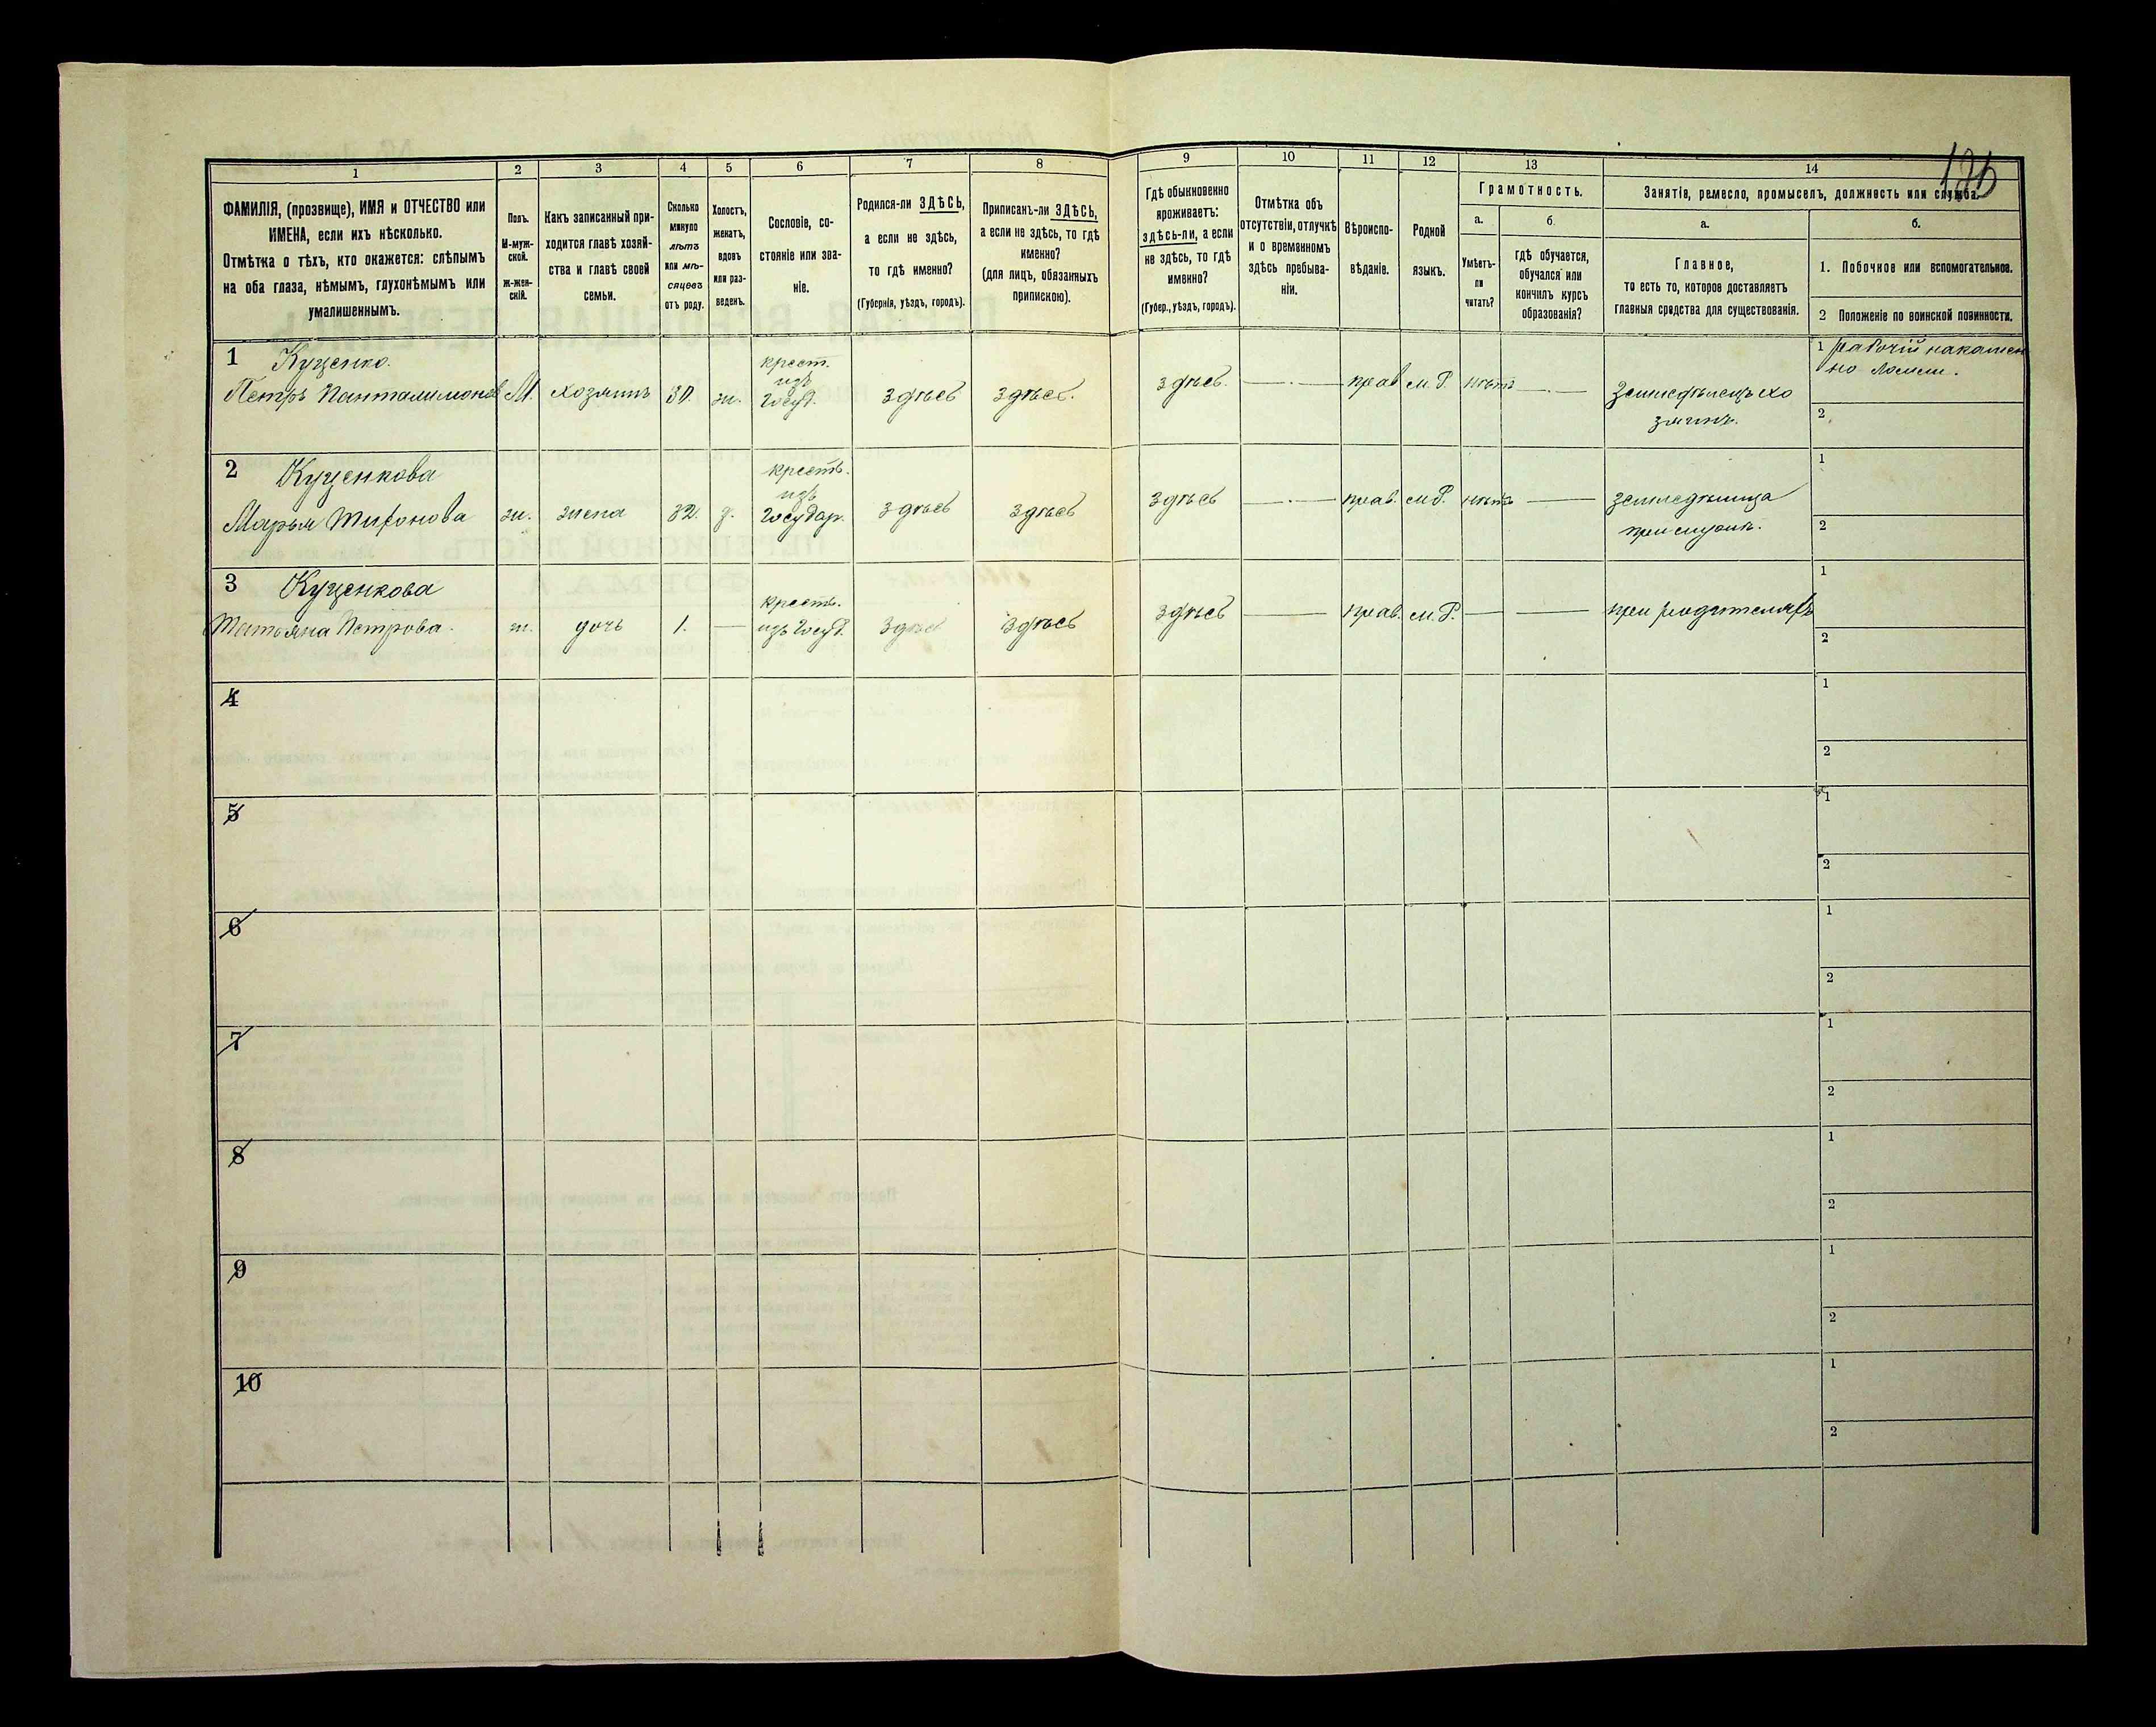 1 2 3 4 5 6 7 8 9 10 11 12 13 14
ФАМИЛІЯ, (прозвище), ИМЯ и ОТЧЕСТВО или
ИМЕНА, если ихъ нѣсколько.
Отмѣтка о тѣхъ, кто окажется: слѣпымъ
на оба глаза, нѣмымъ, глухонѣмымъ или
умалишеннымъ.
Полъ.
М-муж-
ской.
ж-жен-
скій.
Какъ записанный при-
ходится главѣ хозяй-
ства и главѣ своей
семьи.
Сколько
минуло
лѣтъ
или мѣ-
сяцевъ
отъ роду.
Холостъ,
женатъ,
вдовъ
или раз-
веденъ.
Сословіе, со-
стояніе или зва-
ніе.
Родился-ли ЗДѢСЬ,
а если не здѣсь,
то гдѣ именно?
(Губернія, уѣздъ, городъ).
Приписанъ-ли ЗДѢСЬ,
а если не здѣсь, то гдѣ
именно?
(для лицъ, обязанныхъ
припискою).
Гдѣ обыкновенно
проживаетъ:
здѣсь-ли, а если
не здѣсь, то гдѣ
именно?
(Губер., уѣздъ, городъ).
Отмѣтка объ
отсутствіи, отлучкѣ
и о временномъ
здѣсь пребыва-
ніи.
Вѣроиспо-
вѣданіе.
Родной
языкъ.
Грамотность.
а.
Умѣетъ-
ли
читать?
б.
гдѣ обучается,
обучался или
кончилъ курсъ
образованія?
Занятія, ремесло, промыселъ, должность или служба.
а.
Главное,
то есть то, которое доставляетъ
главныя средства для существованія.
б.
1. Побочное или вспомогательное.
2 Положеніе по воинской повинности.
1 Куценко.
Петръ Пантелимонов М. хозяинъ 30. ж. крест.
изъ
Госуд. здѣсь здѣсь. здѣсь. прав м. Р. нѣтъ Земледѣлецъ хо
зяинъ.
1 рабочій на камен
но ломни.
2
2 Куценкова
Марья Тифонова ж. жена 32. з. крестъ.
изъ
Государ. здѣсь здѣсь здѣсь прав. м. Р. нѣтъ земледѣлица
при мужѣ.
1
2
3 Куценкова
Татьяна Петрова. ж. дочь 1. крестъ.
изъ Госуд. здѣсь здѣсь здѣсь прав. м. Р. при родителяхъ
1
2
4
1
2
5
1
2
6
1
2
7
1
2
8
1
2
9
1
2
10
1
2